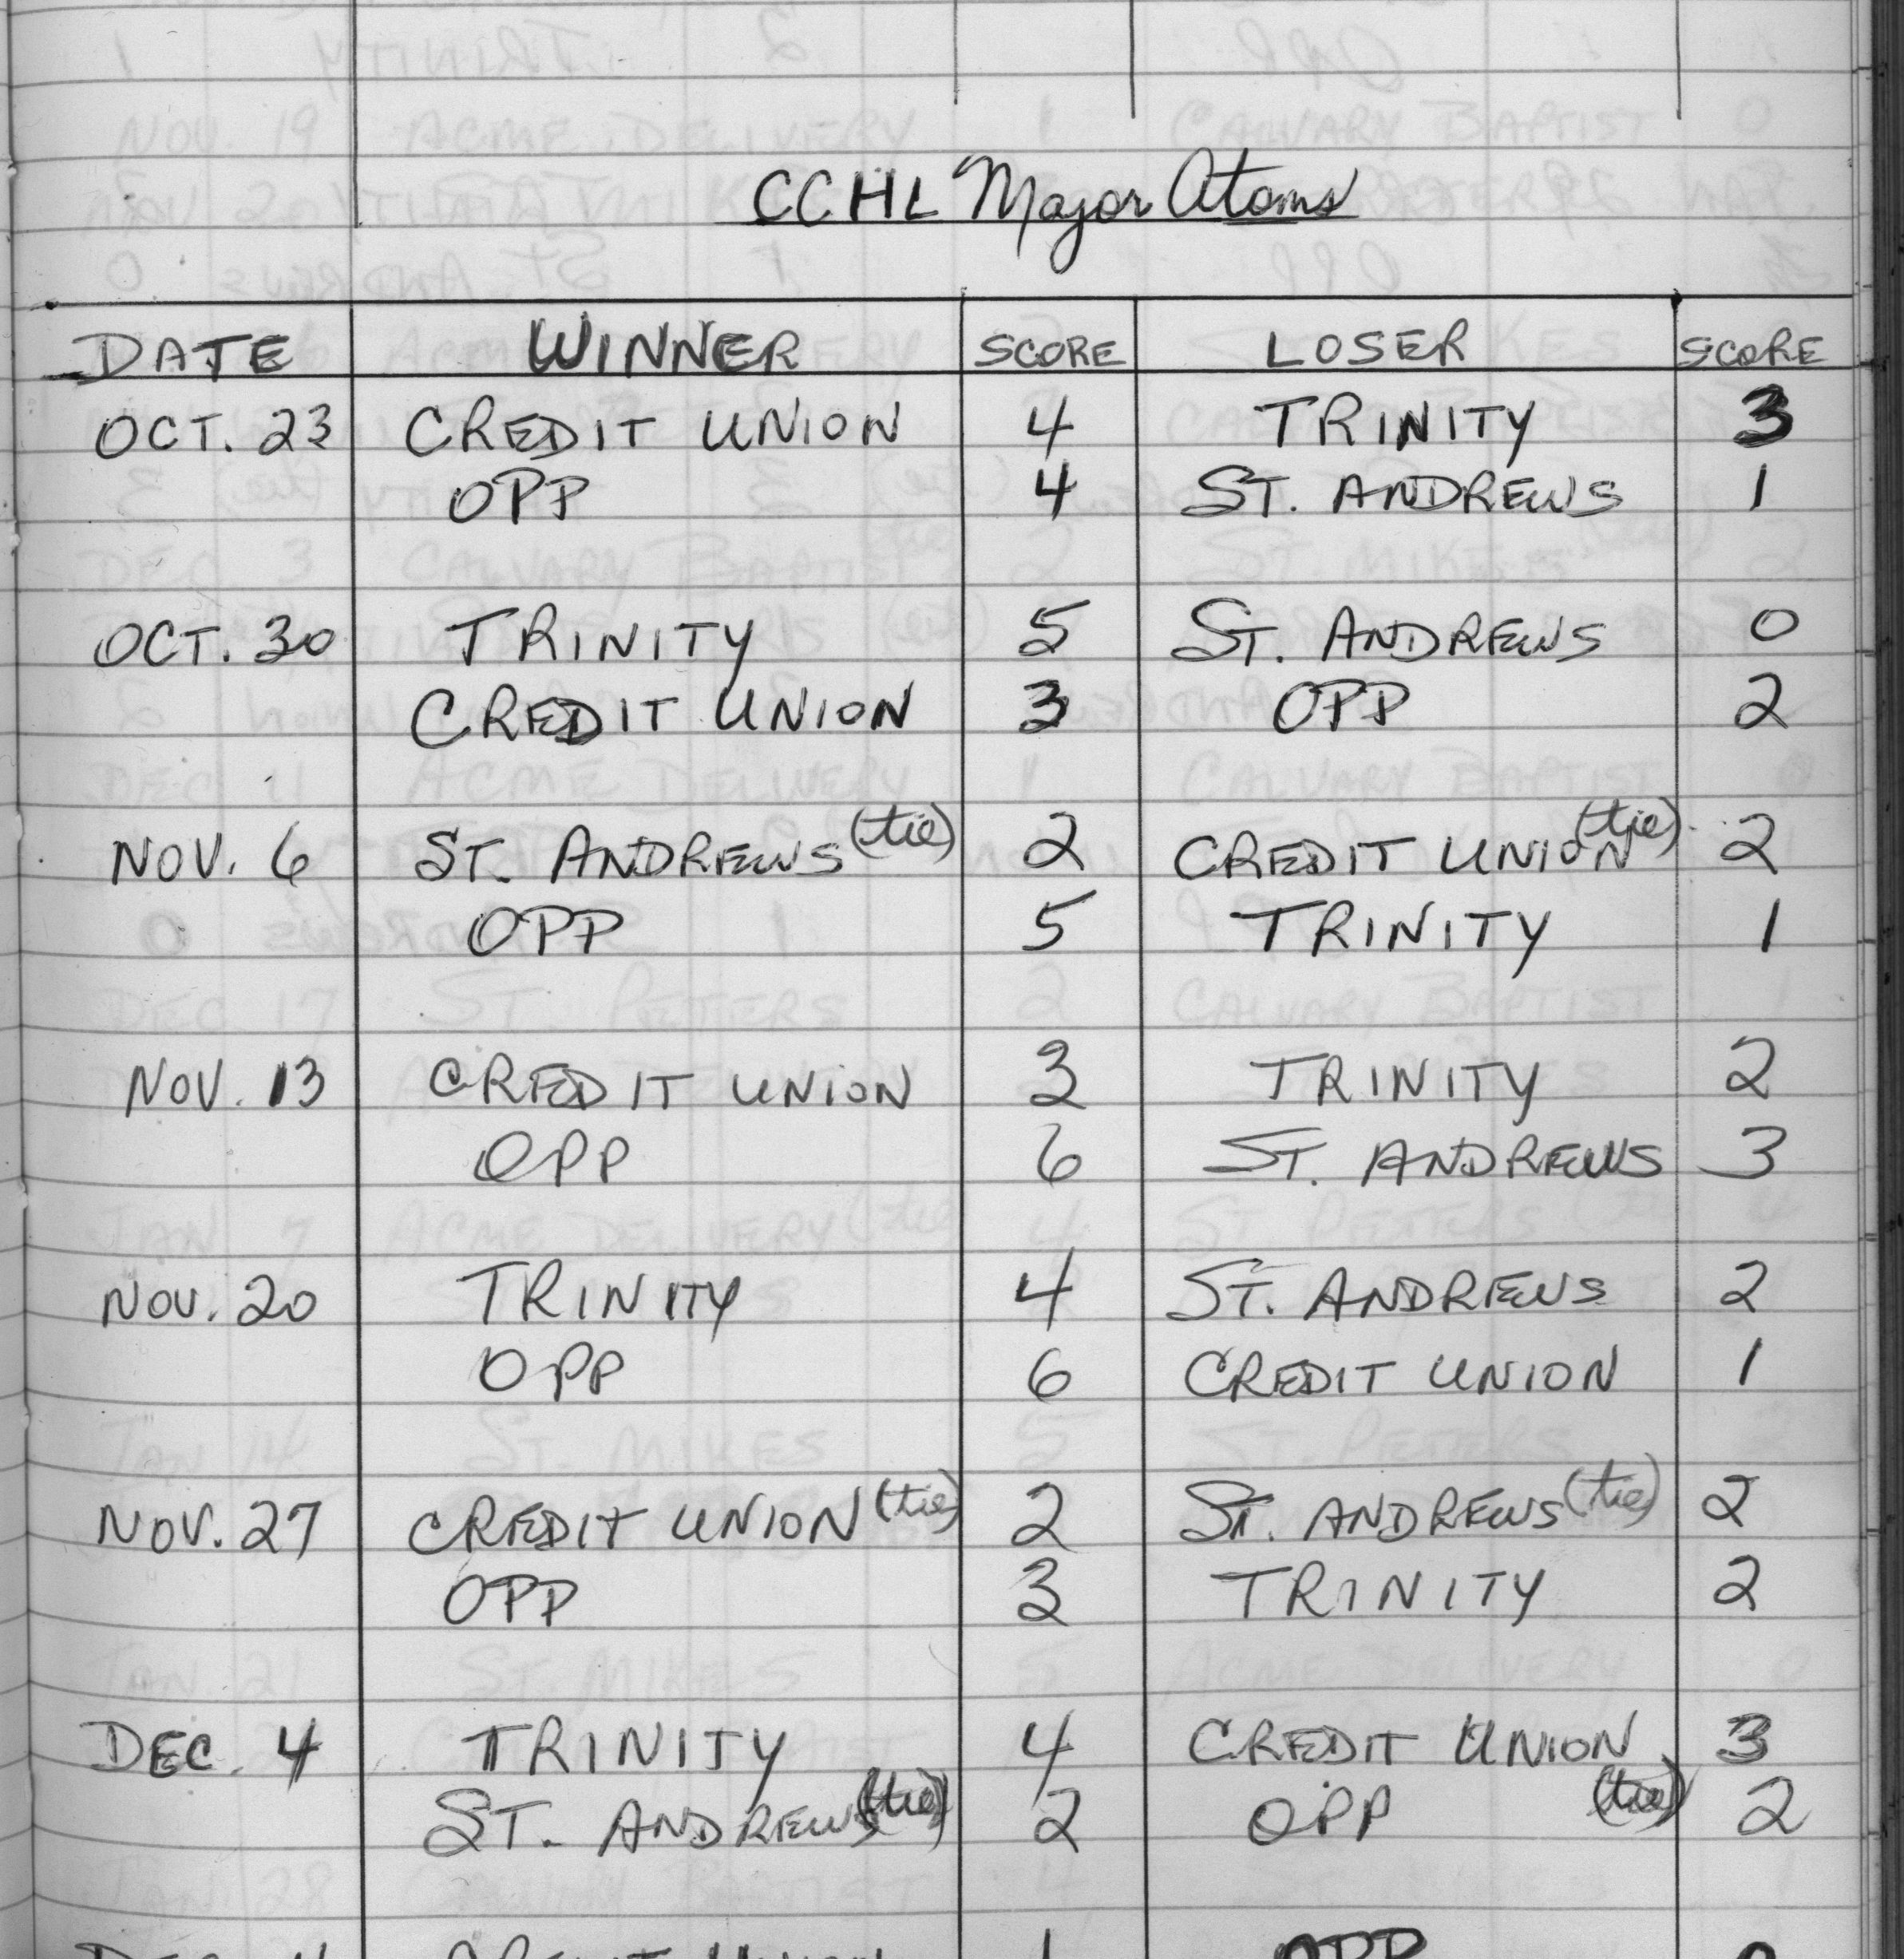 CCHL Major Atoms
DATE WINNER SCORE LOSER SCORE
OCT. 23 CREDIT UNION 4 TRINITY 3
OPP 4 ST. ANDREWS 1
OCT. 30 TRINITY 5 ST. ANDREWS 0
CREDIT UNION 3 OPP 2
NOV. 6 ST. ANDREWS (tie) 2 CREDIT UNION (tie) 2
OPP 5 TRINITY 1
NOV. 13 CREDIT UNION 3 TRINITY 2
OPP 6 ST. ANDREWS 3
NOV. 20 TRINITY 4 ST. ANDREWS 2
OPP 6 CREDIT UNION 1
NOV. 27 CREDIT UNION (tie) 2 ST. ANDREWS (tie) 2
OPP 3 TRINITY 2
DEC. 4 TRINITY 4 CREDIT UNION 3
ST. ANDREWS (tie) 2 OPP (tie) 2
CREDIT UNION OPP